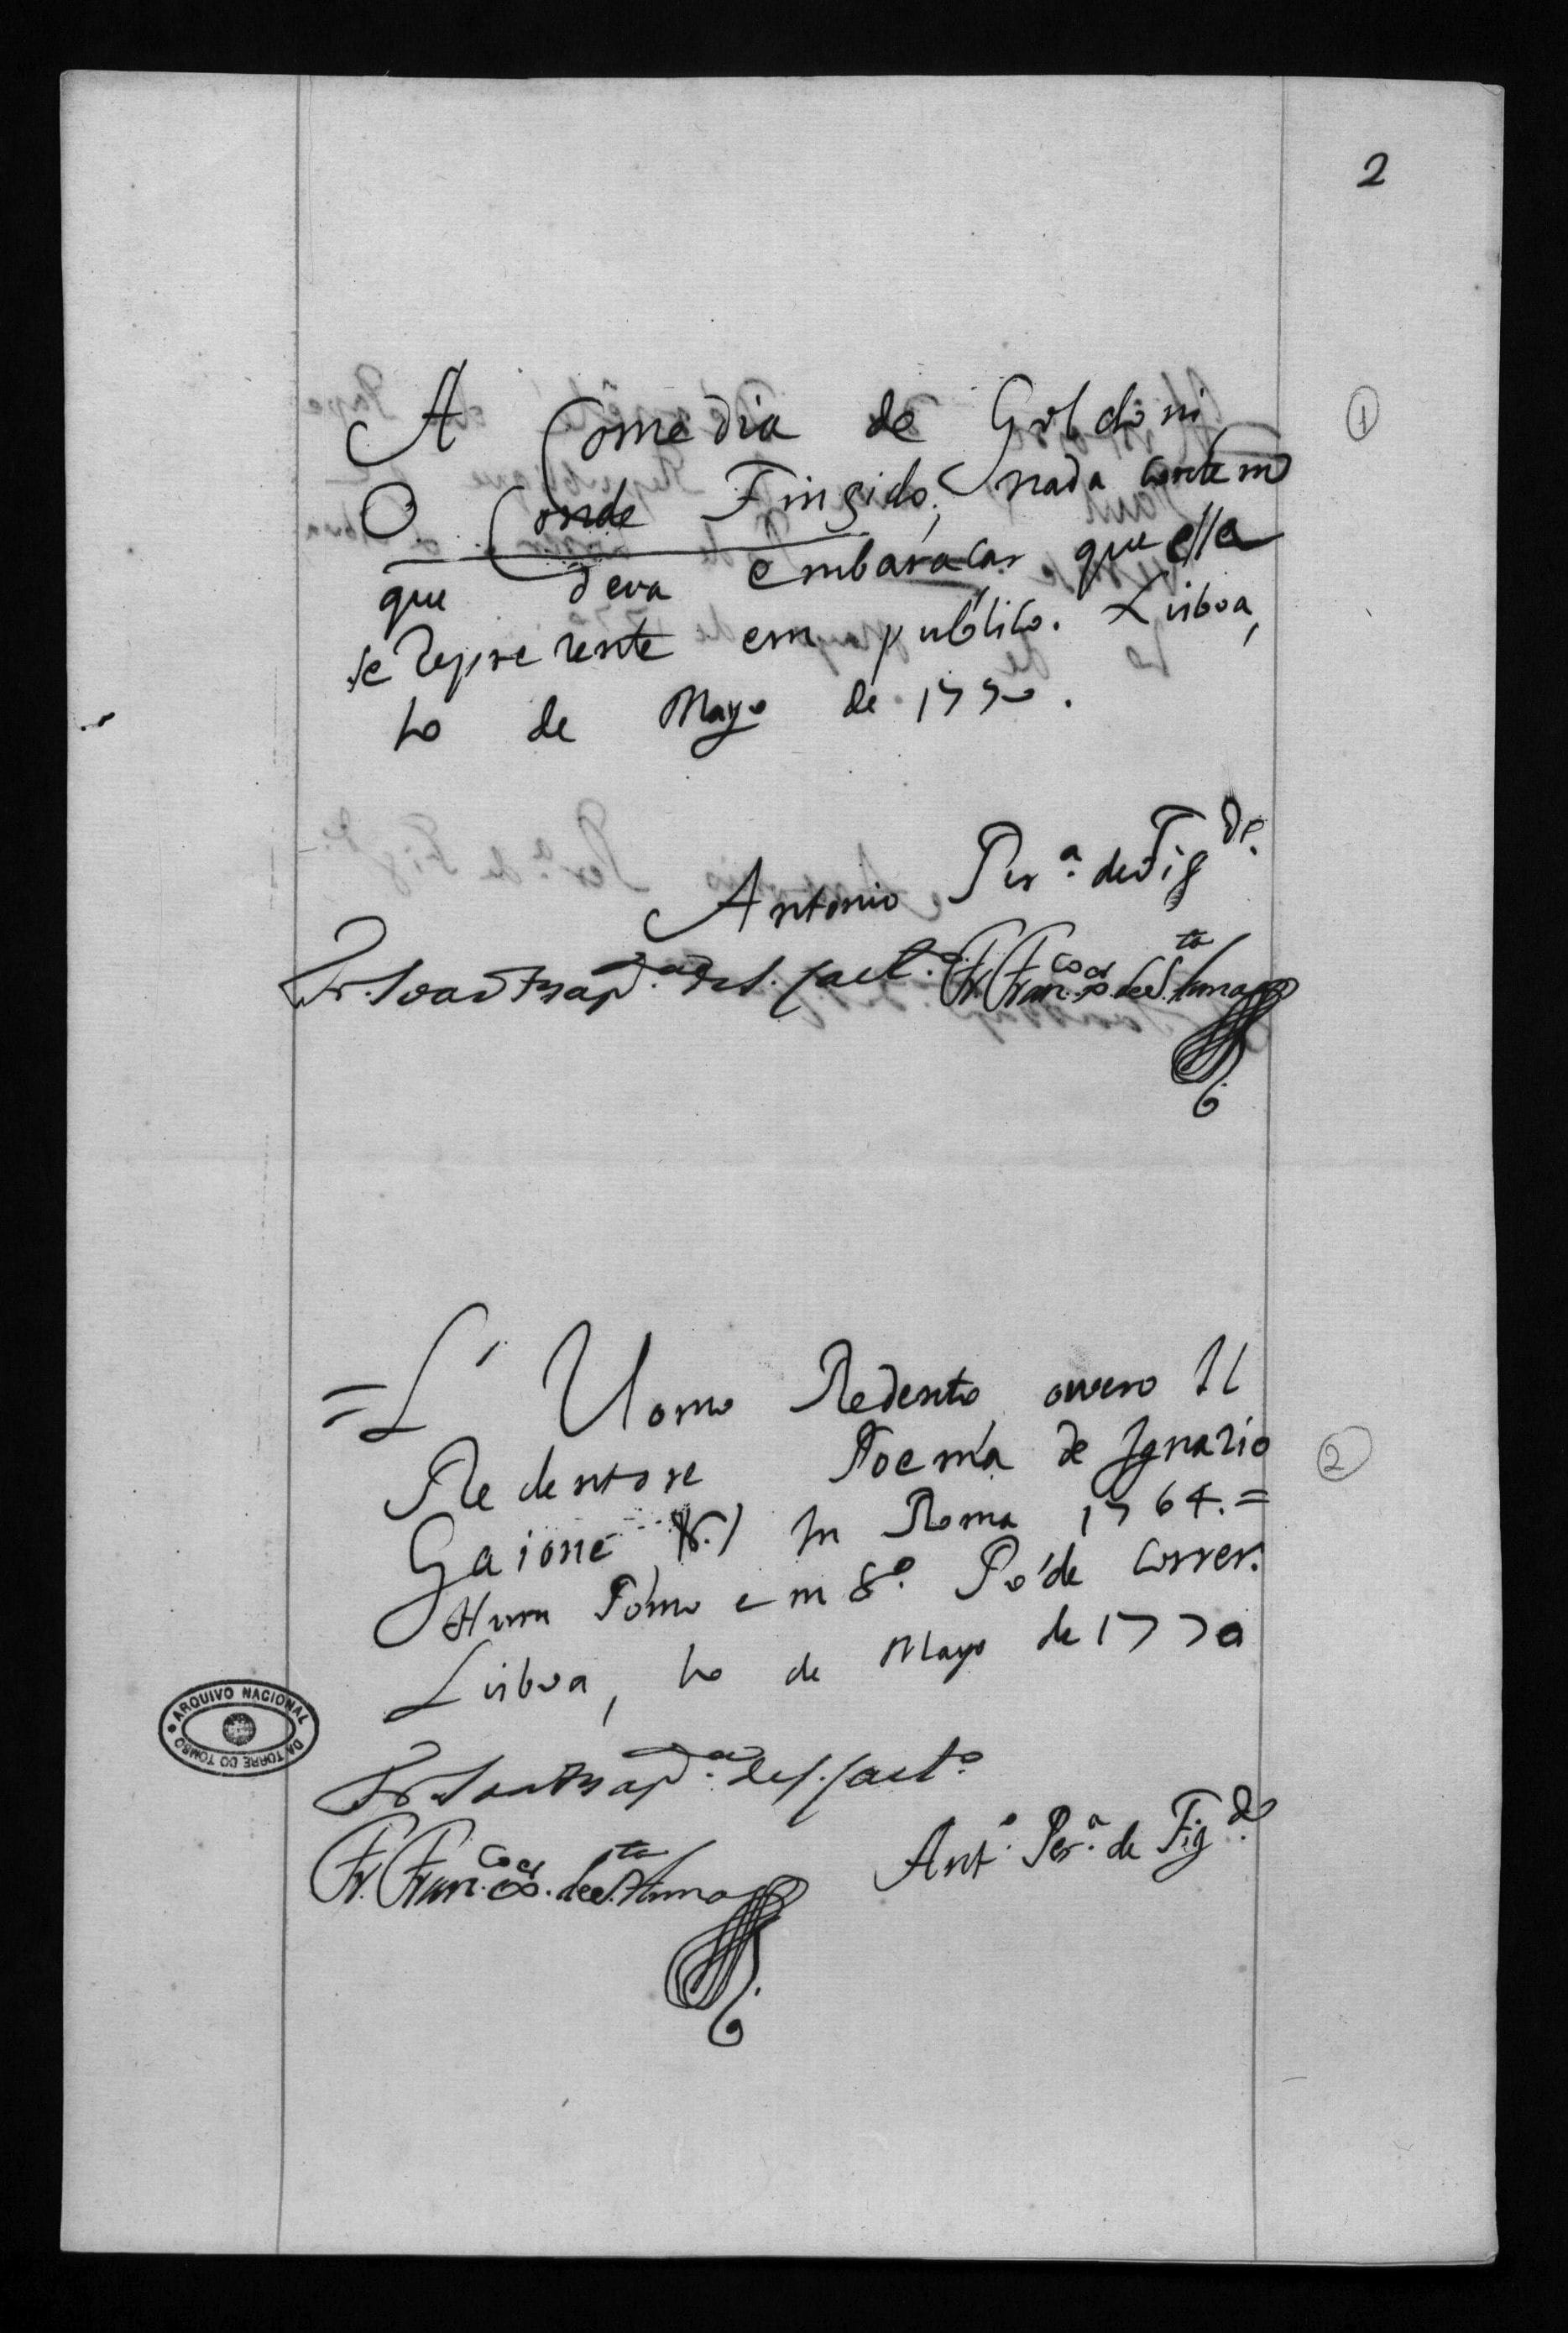 2
A Comedia de Goldoni
1
O Conde Fingido, nada contem
que deva embaraçar que ella
se represente em público. Lisboa,
10 de Mayo de 1770.
Antonio Per.ª de Fig.do
Fr. Joaõ Bap.ta de S. Caet.º Fr. Fran.co de S.ta Anna
= L' Uomo Redento, overo Il
Redentore Poema de Ignazio
2
Gaione In Roma 1764. =
Hum Tomo em 8.º Póde correr.
Lisboa, 10 de Mayo de 1770
ARQUIVO NACIONAL
DA TORRE DO TOMBO
Fr. Joaõ Bap.ta de S. Caet.º
Ant.º Per.ª de Fig.do
Fr. Fran.co de S.ta Anna